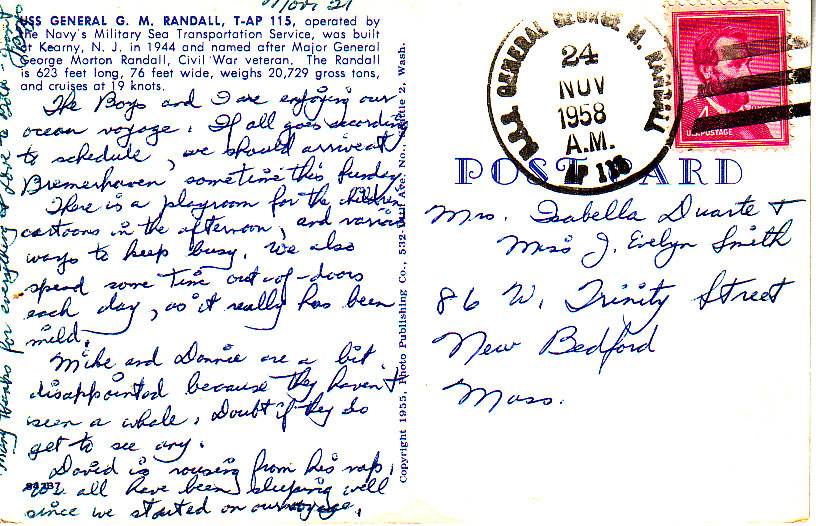 Nov 21
USS GENERAL G. M. RANDALL, T-AP 115, operated by
the Navy's Military Sea Transportation Service, was built
at Kearny, N. J. in 1944 and named after Major General
George Morton Randall, Civil War veteran. The Randall
is 623 feet long, 76 feet wide, weighs 20,729 gross tons,
and cruises at 19 knots.
The Boys and I are enjoying our
ocean voyage. If all goes according
to schedule, we should arrive at
Bremerhaven sometime this Sunday.
There is a playroom for the children
cartoons in the afternoon, and various
ways to keep busy. We also
spend some time out-of-doors
each day, as it really has been
mild.
Mike and Donnie are a bit
disappointed because they haven't
seen a whale. Doubt if they do
get to see any.
David is rousing from his nap.
We all have been sleeping well
since we started on our voyage.
94737
Many thanks for everything & Love to
Copyright 1955, Photo Publishing Co., 532 Ave. No., Seattle 2, Wash.
U.S.S. GENERAL GEORGE M. RANDALL
24
NOV
1958
A.M.
AP 115
4
U.S. POSTAGE
POST CARD
Mrs. Isabella Duarte +
Miss J. Evelyn Smith
86 W. Trinity Street
New Bedford
Mass.